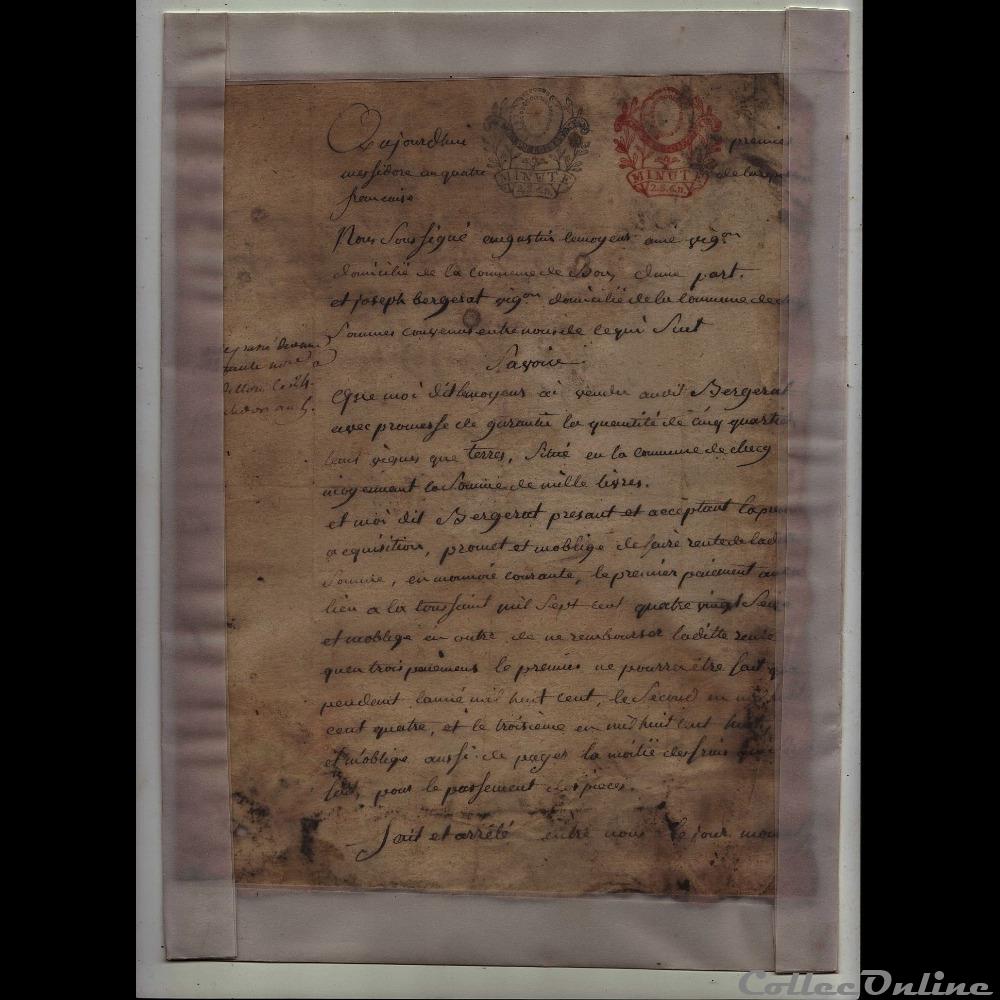 Aujourdhui premier
messidore an quatre de la rep
francaise
MINUTE
2.S.6.D.
MINUTE
2.S.6.D.
Nous Soussigné augustin lemoyeux ainé vigon
domicilié de la Commune de Bou, dune part.
et joseph bergerat vigon domicilié de la Commune de
Sommes convenus entre nous de ce qui Suit
Savoire
Que moi dit lemoyeux ai vendu audit Bergerat
avec promesse de garantir la quantité de cinq quartier
tant vignes que terres, Situé en la commune de checy
moyennant la Somme de mille livres.
et moi dit Bergerat présant et accéptant la
acquisition, promet et moblige de faire rente de lad
Somme, en monnoie courante, le premier paiement au
lieu a la toussaint mil sept cent quatre vingt Sei
et moblige en outre de ne rembourser laditte rente
quen trois paiémens le premier ne pourra être fait q
pendant lanné mil huit cent, le Second en mi
cent quatre, et le troisième en mil huit cent huit
et m'oblige aussi de payer la moitié des frais
pour le passement des pieces.
Fait et arrêté entre nous le jour moi
CollecOnline